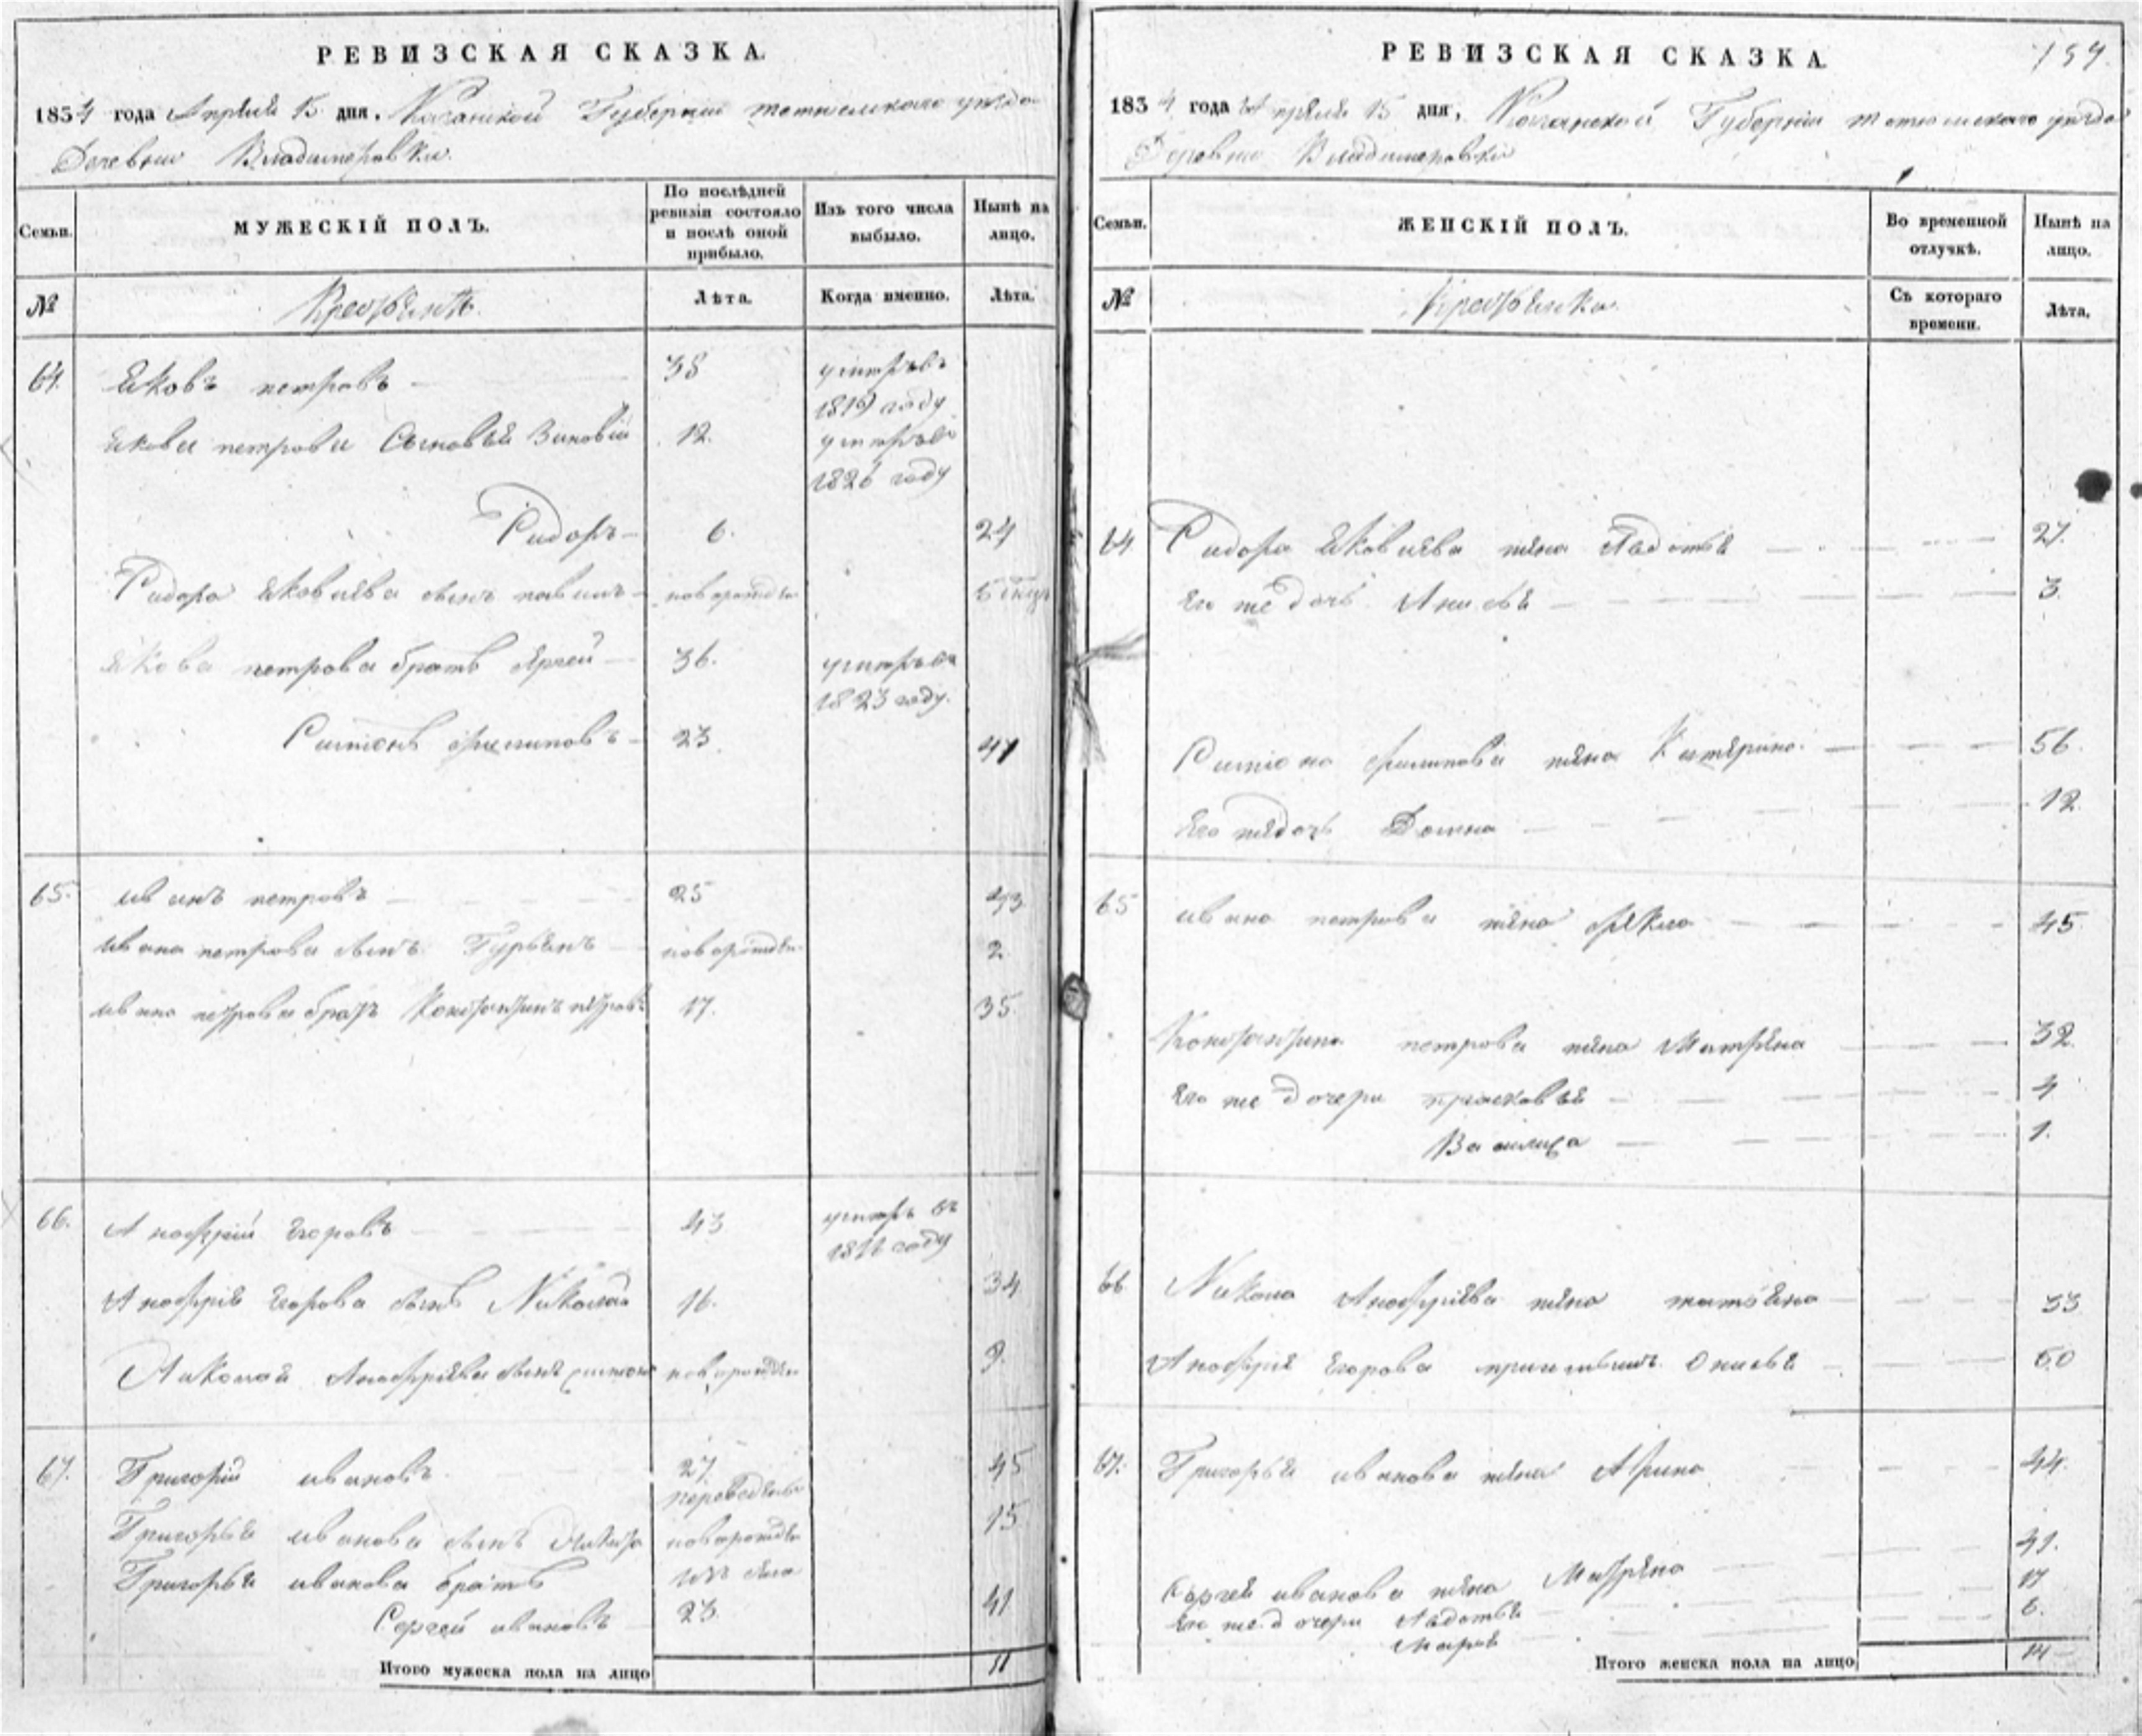 РЕВИЗСКАЯ СКАЗКА.
1834 года Апреля 15 дня, Казанской Губернии тетюшскаго уезда
Деревни Владимировки.
Семьи.
МУЖЕСКІЙ ПОЛЪ.
По послѣдней ревизіи состояло и послѣ оной прибыло.
Изъ того числа выбыло.
Нынѣ на лицо.
№
Крестьянъ.
Лѣта.
Когда именно.
Лѣта.
64. Яковъ петровъ 38
1819 году
Якова петрова Сыновья Зиновій 12.
1826 году
Сидоръ 6. 24
Сидора Яковлева сынъ новорожден
Якова петрова братъ 36.
1823 году.
23 47
65. иванъ петровъ 25 43
ивана петрова сынъ Гурьянъ новорожден 2
ивана петрова братъ Константинъ петровъ 17. 35
66. Анофрій Егоровъ 43
году
Анофрія Егорова сынъ Николай 16. 34
Николая Анофріева сынъ новорожден 9.
67. Григорій ивановъ 27. 45
Григорья иванова сынъ Никита новорожден 15
Григорья иванова братъ
Сергей ивановъ 23. 41
Итого мужеска пола на лицо 11
РЕВИЗСКАЯ СКАЗКА.
1834 года Апреля 15 дня, Казанской Губерніи тетюшскаго уезда
Деревни Владимировки
Семьи.
ЖЕНСКІЙ ПОЛЪ.
Во временной отлучкѣ.
Нынѣ на лицо.
№
Крестьянка.
Съ котораго времени.
Лѣта.
64 Сидора Яковлева жена Авдотья 27.
Его же дочь Анисья 3.
жена Катерина 56.
Его же дочь Домна 12.
65 ивана петрова жена Фекла 45
Константина петрова жена Матрена 32.
Его же дочери прасковья 4
Василиса 1.
66 Анофріева жена татьяна 33
Анофрія Егорова Онисья 60
67. Григорья иванова жена Арина 44.
Сергея иванова жена Матрена 41.
Его же дочери Авдотья 17
6.
Итого женска пола на лицо 14